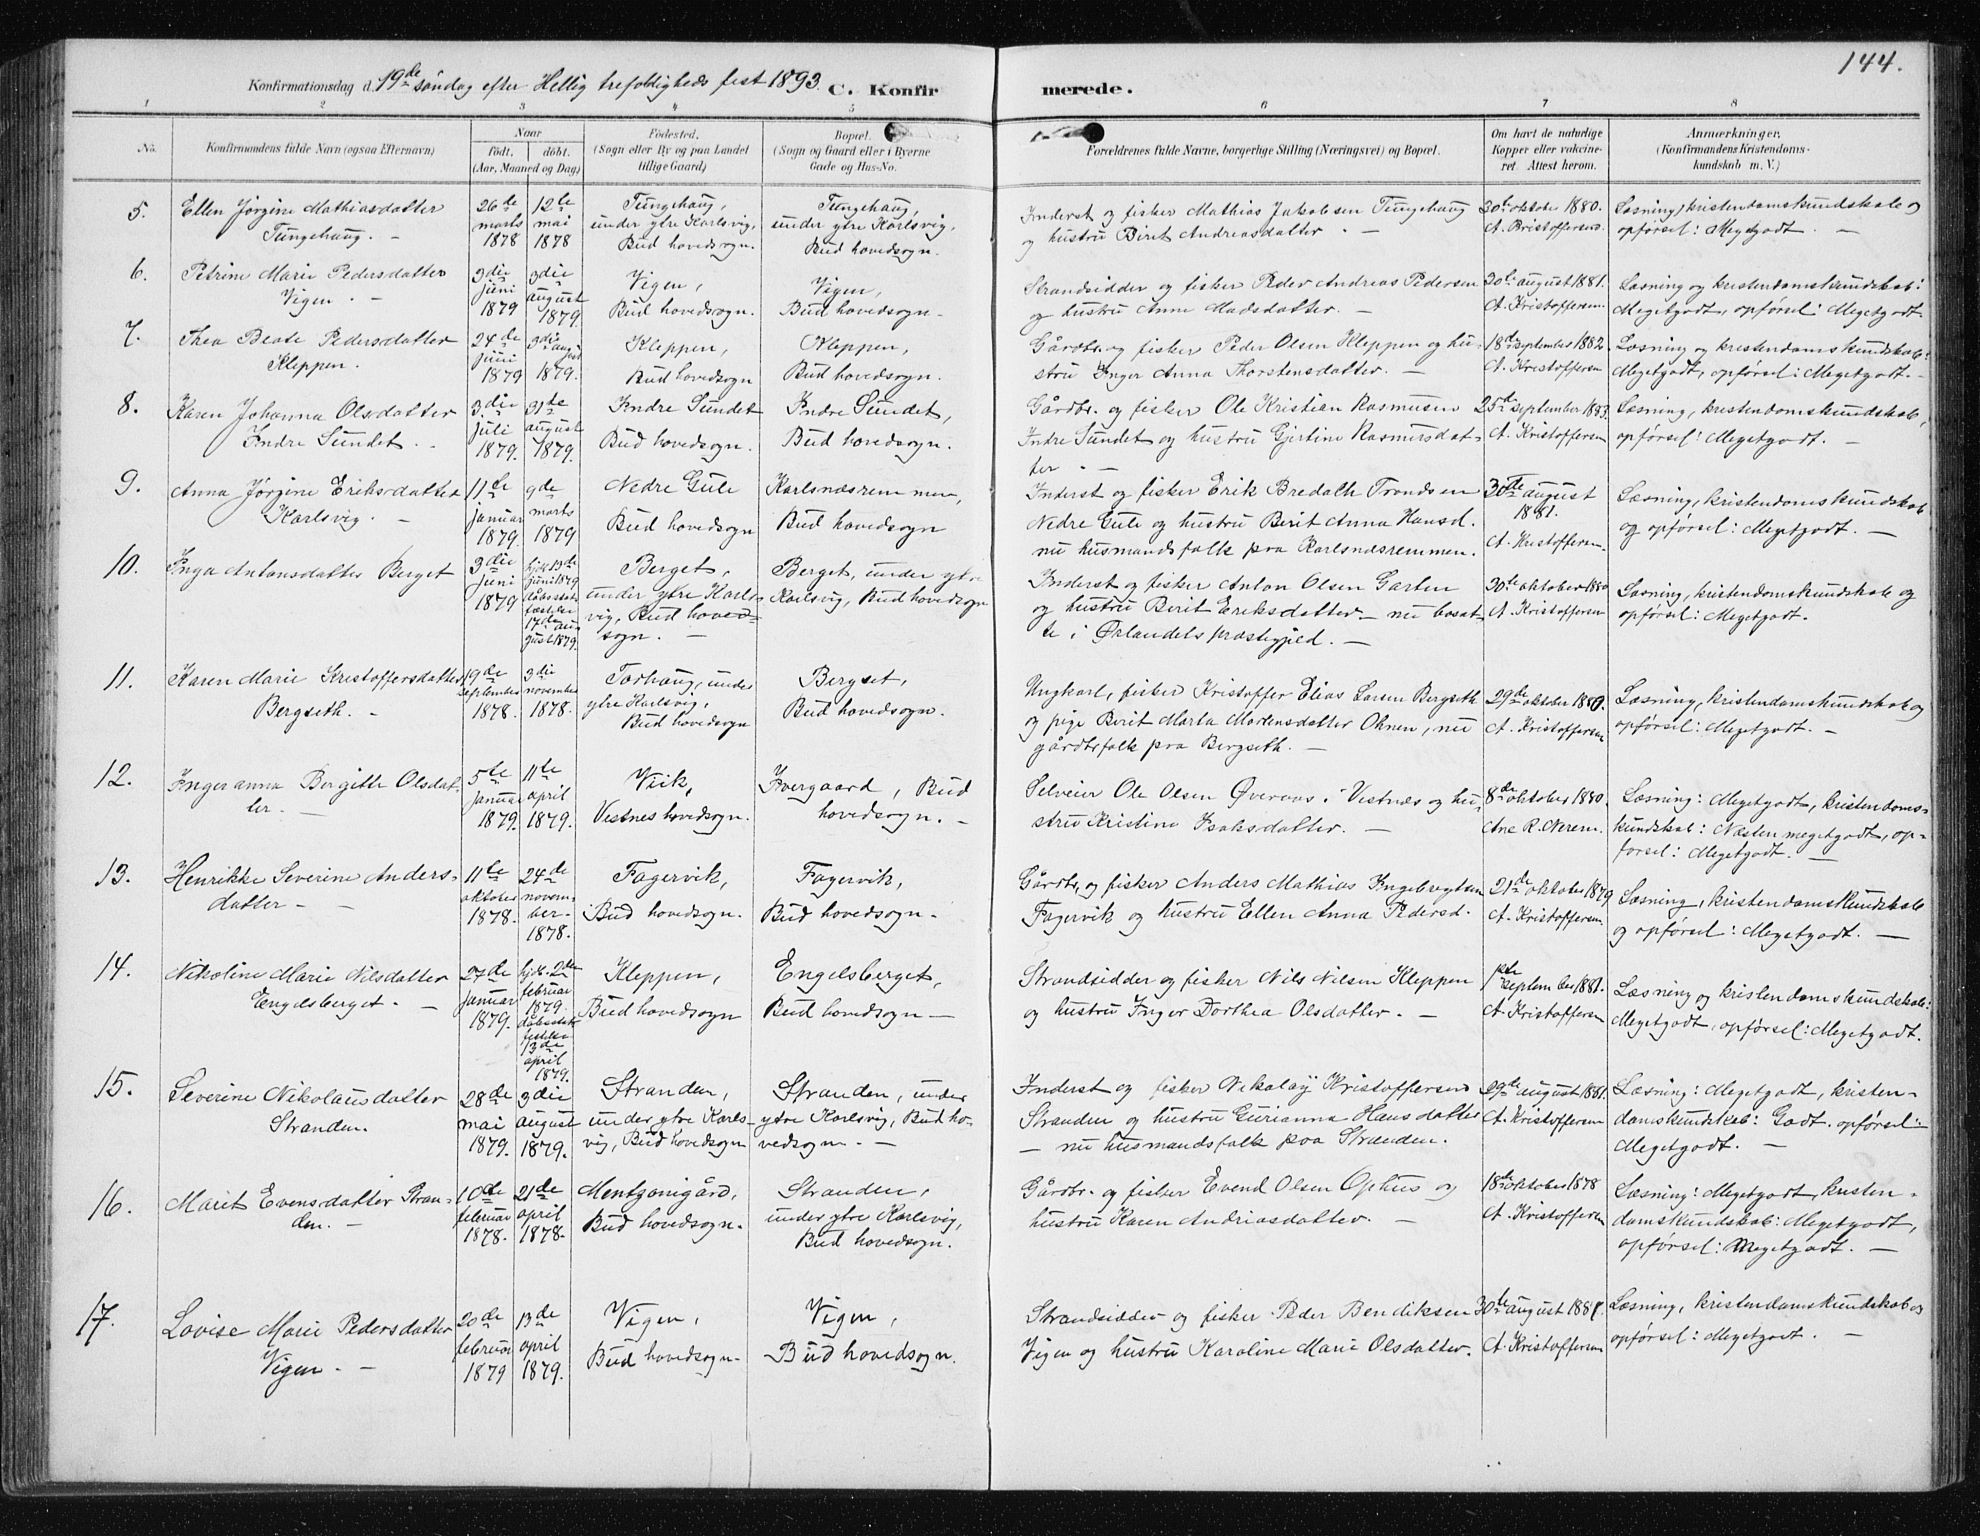 144.
Konfirmationsdag d. 19de søndag efter Hellig trefoldigheds fest 1893. C. Konfirmerede.
1 2 3 4 5 6 7 8
No. Konfirmandens fulde Navn (ogsaa Efternavn)
Naar født, døbt. (Aar, Maaned og Dag)
Fødested. (Sogn eller By og paa Landet tillige Gaard)
Bopæl. (Sogn og Gaard eller i Byerne Gade og Hus-No.
Forældrenes fulde Navne, borgerlige Stilling (Næringsvei) og Bopæl.
Om havt de naturlige Kopper eller vakcineret. Attest herom.
Anmærkninger. (Konfirmandens Kristendomskundskab m. V.)
5. Ellen Jørgine Mathiasdatter
Tungehaug. —
26de marts 1878
12te mai 1878
Tungehaug,
under ytre Karlsvig,
Bud hovedsogn.
Tungehaug,
under ytre Karlsvig,
Bud hovedsogn.
Inderst og fisker Mathias Jakobsen Tungehaug
og hustru Birit Andreasdatter. —
30te oktober 1880.
A. Kristoffersen.
Læsning, kristendomskundskab og
opførsel: Megetgodt. —
6. Petrine Marie Pedersdatter
Vigen. —
3die juni 1879
3die august 1879.
Vigen,
Bud hovedsogn.
Vigen,
Bud hovedsogn. —
Strandsidder og fisker Peder Andreas Pedersen
og hustru Anne Madsdatter. —
30te august 1881.
A. Kristoffersen
Læsning og kristendomskundskab:
Megetgodt, opførsel: Megetgodt
7. Thea Beate Pedersdatter
Kleppen.
24de juni 1879
3die august 1879.
Kleppen,
Bud hovedsogn
Kleppen,
Bud hovedsogn.
Gårdbr. og fisker Peder Olsen Kleppen og hu-
stru Inger Anna Thorstensdatter. —
18de september 1882.
A. Kristoffersen
Læsning og kristendomskundskab:
Megetgodt, opførsel: Megetgodt. —
8. Karen Johanna Olsdatter
Indre Sundet. —
3die juli 1879.
31te august 1879.
Indre Sundet
Bud hovedsogn.
Indre Sundet,
Bud hovedsogn.
Gårdbr. og fisker Ole Kristian Rasmusen
Indre Sundet og hustru Gjertine Rasmusdat-
ter. —
25de september 1883.
A. Kristoffersen
Læsning, kristendomskundskab,
opførsel: Megetgodt. —
9. Anna Jørgine Eriksdatter
Karlsvig. —
11te januar 1879.
9de marts 1879
Nedre Gule
Bud hovedsogn
Karlsnæsremmen,
Bud hovedsogn
Inderst og fisker Erik Bredahl Trondsen
Nedre Gule og hustru Berit Anna Hansd.
nu husmandsfolk paa Karlsnæsremmen.
30te august
1881.
A. Kristoffersen.
Læsning, kristendomskundskab
og opførsel: Megetgodt. —
10. Inga Antonsdatter Berget
3die juni 1879
hjd. 13de juni 1879 dåbsstadfæstelse 17de august 1879.
Berget,
under ytre Karls-
vig, Bud hoved-
sogn. —
Berget, under ytre
Karlsvig, Bud hovedsogn
Inderst og fisker Anton Olsen Garten
og hustru Berit Eriksdatter — nu bosat-
te i Ørlandets præstegjeld. —
30te oktober 1880
A. Kristoffersen
Læsning, kristendomskundskab og
opførsel: Megetgodt.
11. Karen Marie Kristoffersdatter
Bergseth. —
19de september 1878.
3die november 1878.
Torhaug, under
ytre Karlsvig,
Bud hovedsogn
Bergset,
Bud hovedsogn.
Ungkarl, fisker Kristoffer Elias Larsen Bergseth
og pige Berit Marta Mortensdatter Ohnen, nu
gårdbrfolk paa Bergseth. —
29de oktober 1880.
A. Kristoffersen
Læsning, kristendomskundskab og
opførsel: Megetgodt. —
12. Inger anna Bergitte Olsdat-
ter. —
5te januar 1879.
11te april 1879.
Viik,
Vestnes hovedsogn.
Ivergaard, Bud
hovedsogn. —
Selveier Ole Olsen Øveraas i Vestnæs og hu-
stru Kristine Isaksdatter. —
8de oktober 1880.
Ane R. Nerem.
Læsning: Megetgodt, kristendoms-
kundskab: Næsten megetgodt, op-
førsel: Megetgodt. —
13. Henrikke Severine Anders-
datter — —
11te oktober 1878.
24de november 1878.
Fagervik,
Bud hovedsogn.
Fagervik,
Bud hovedsogn. —
Gårdbr. og fisker Anders Mathias Ingebrigtsen
Fagervik og hustru Ellen Anna Pedersd.
21de oktober 1879
A. Kristoffersen
Læsning, kristendomskundskab
og opførsel: Megetgodt. —
14. Nikoline Marie Nilsdatter
Engelsberget. —
27de januar 1879.
hjd. 2den februar 1879. dåbsstadfæstelse 13de april 1879.
Kleppen,
Bud hovedsogn
Engelsberget,
Bud hovedsogn —
Strandsidder og fisker Nils Nilsen Kleppen
og hustru Inger Dorthea Olsdatter. —
1ste september 1881.
A. Kristoffersen
Læsning og kristendomskundskab:
Megetgodt, opførsel: Megetgodt.
15. Severine Nikolausdatter
Stranden.
28de mai 1879.
3die august 1879.
Stranden,
under ytre Karls-
vig, Bud hovedsogn
Stranden, under
ytre Karlsvig, Bud ho-
vedsogn. —
Inderst og fisker Nikolay Kristoffersen
Stranden og hustru Gurianna Hansdatter
— nu husmandsfolk paa Stranden.
29de august 1881.
A. Kristoffersen
Læsning: Megetgodt, kristen-
domskundskab: Godt. opførsel:
Megetgodt. —
16. Marit Evensdatter Stran-
den. —
10de februar 1878.
21de april 1878.
Mentzonigård,
Bud hovedsogn.
Stranden,
under ytre Karlsvig,
Bud hovedsogn.
Gårdbr. og fisker Evend Olsen Ophus og
hustru Karen Andriasdatter. —
18de oktober 1878
A. Kristoffersen
Læsning: Megetgodt, kristen-
domskundskab: Megetgodt,
opførsel: Megetgodt. —
17. Lovise Marie Pedersdatter
Vigen. —
20de februar 1879
13de april 1879.
Vigen,
Bud hovedsogn.
Vigen,
Bud hovedsogn.
Strandsidder og fisker Peder Bendiksen
Vigen og hustru Karoline Marie Olsdatter.
30te august 1881.
A. Kristoffersen
Læsning, kristendomskundskab og
opførsel: Megetgodt. —